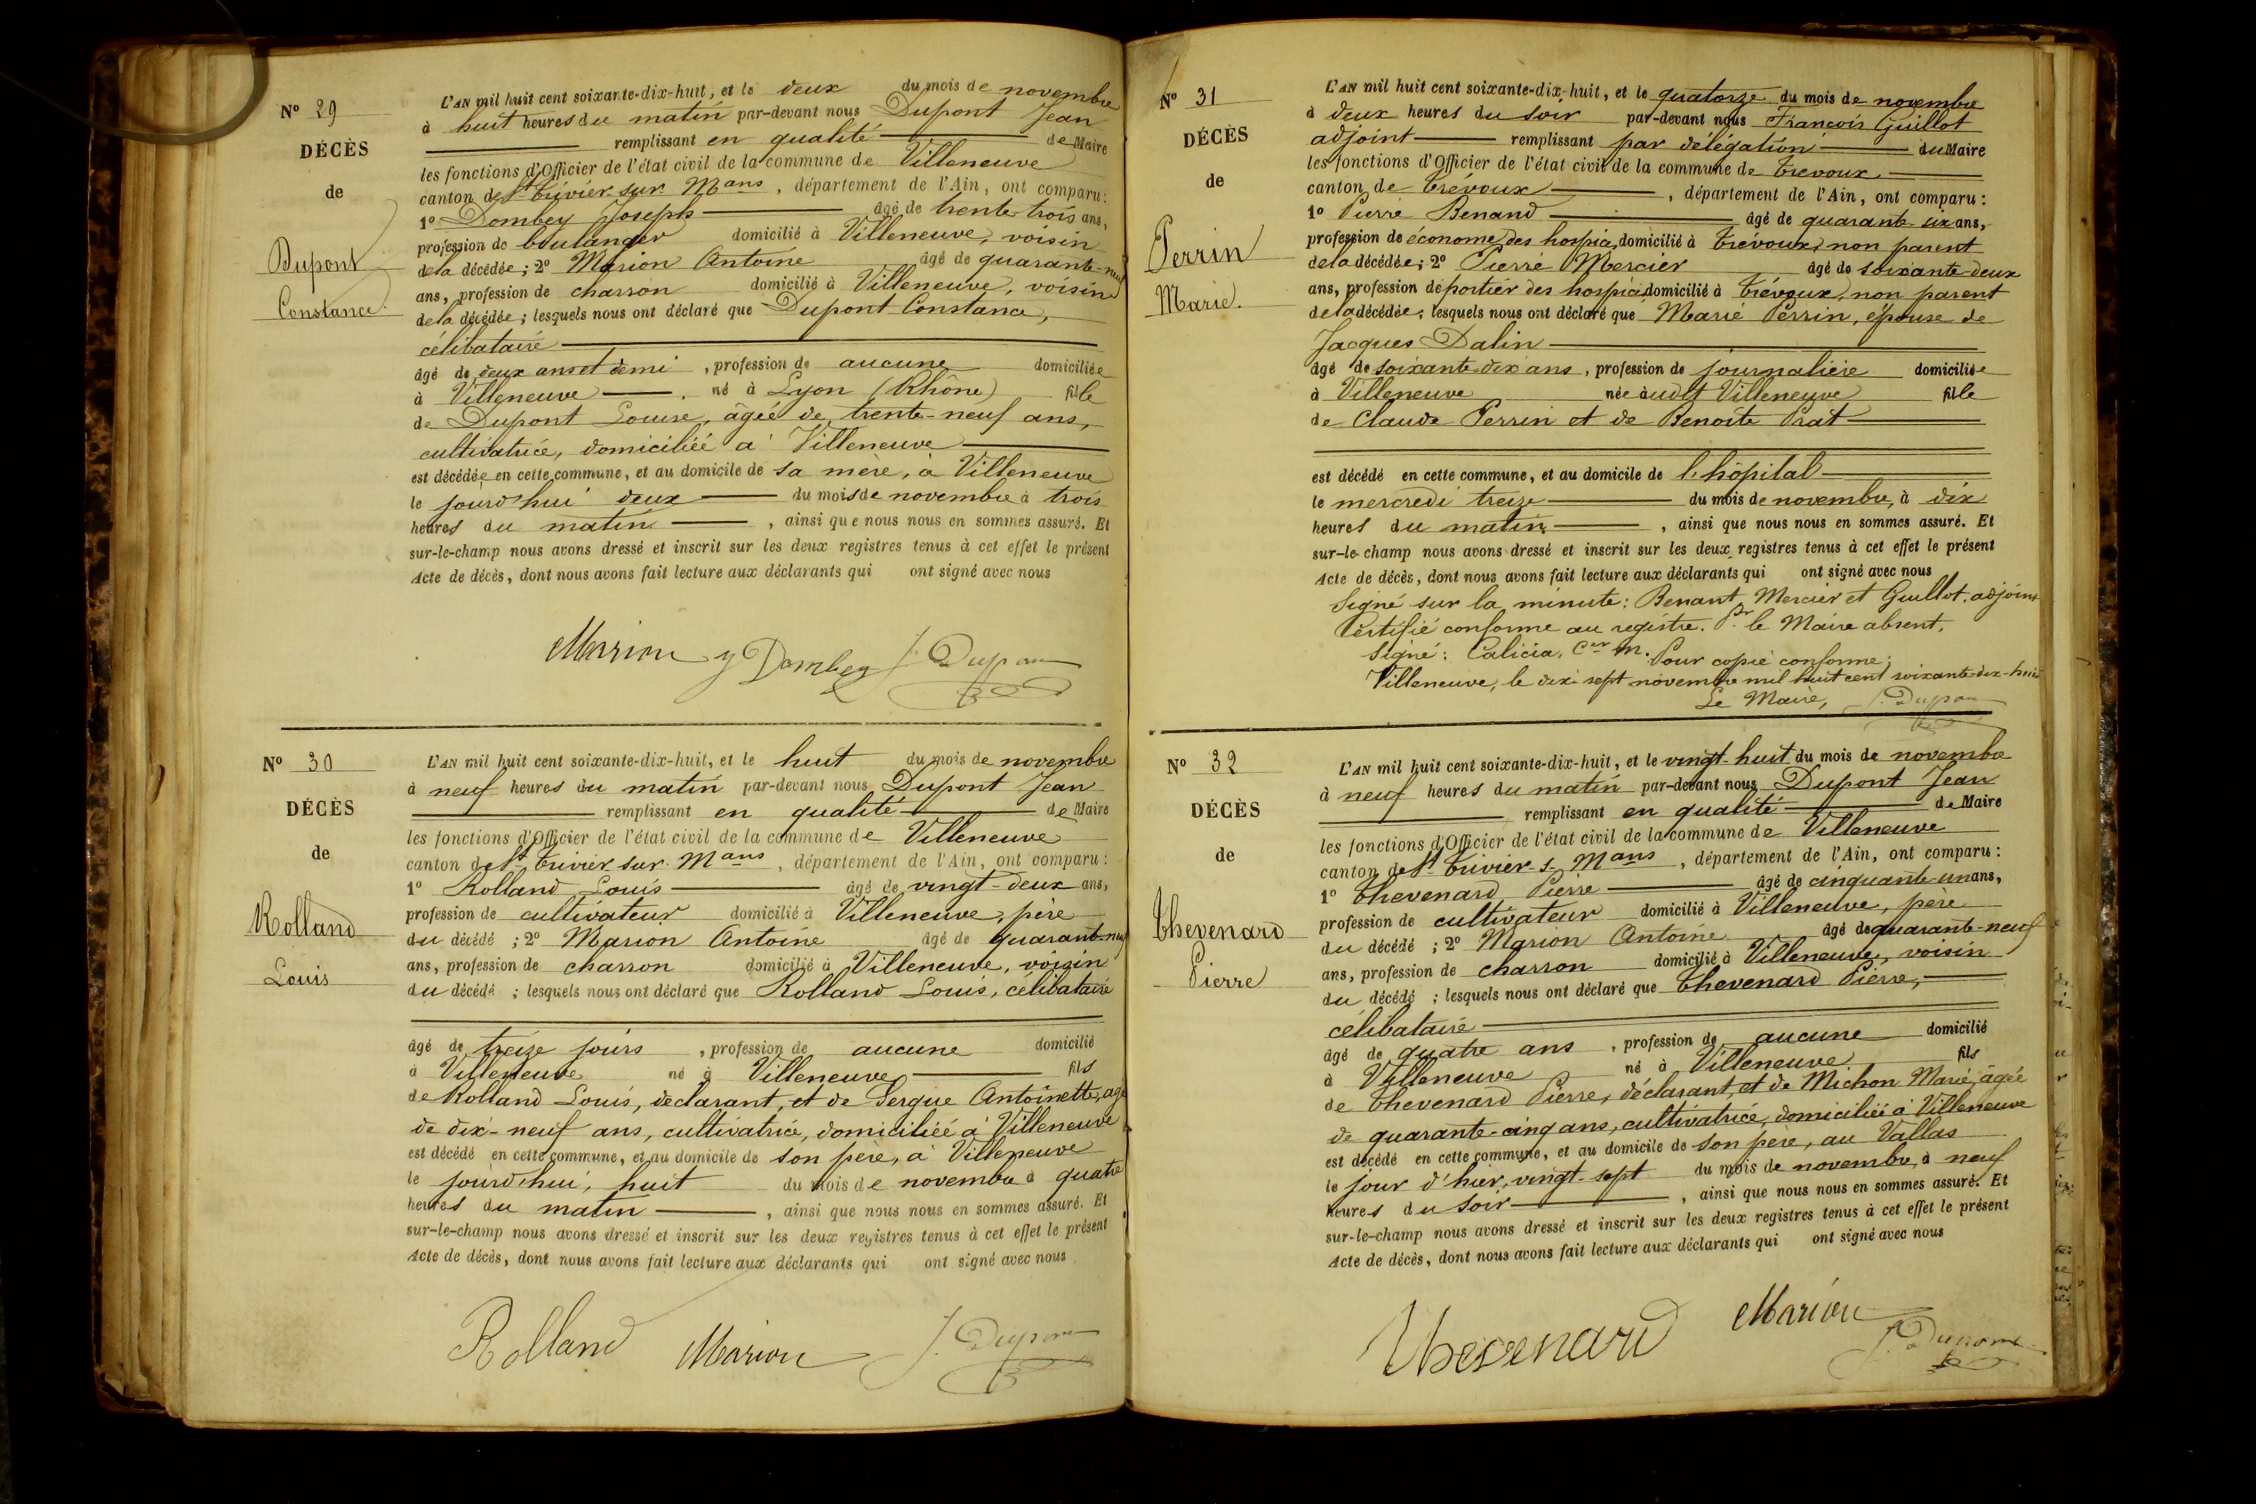 Nº 29
DÉCÈS
de
Dupont
Constance.
L'AN mil huit cent soixante-dix-huit, et le deux du mois de novembre
à huit heures du matin par-devant nous Dupont Jean
remplissant en qualité de Maire
les fonctions d'Officier de l'état civil de la commune de Villeneuve
canton de St Trivier sur Mans, département de l'Ain, ont comparu:
1º Dombey Joseph âgé de trente-trois ans,
profession de boulanger domicilié à Villeneuve, voisin
de la décédée; 2º Marion Antoine âgé de quarante-neuf
ans, profession de charron domicilié à Villeneuve, voisin
de la décédée; lesquels nous ont déclaré que Dupont Constance,
célibataire
âgé de deux ans et demi, profession de aucune domiciliée
à Villeneuve. né à Lyon (Rhône) fille
de Dupont Louise, âgée de trente-neuf ans,
cultivatrice, domiciliée à Villeneuve
est décédée en cette commune, et au domicile de sa mère, à Villeneuve
le jourd'hui deux du mois de novembre à trois
heures du matin, ainsi que nous nous en sommes assuré. Et
sur-le-champ nous avons dressé et inscrit sur les deux registres tenus à cet effet le présent
Acte de décès, dont nous avons fait lecture aux déclarants qui ont signé avec nous
Marion J Dombey J. Dupont
Nº 30
DÉCÈS
de
Rolland
Louis
L'AN mil huit cent soixante-dix-huit, et le huit du mois de novembre
à neuf heures du matin par-devant nous Dupont Jean
remplissant en qualité de Maire
les fonctions d'Officier de l'état civil de la commune de Villeneuve
canton de St Trivier sur Mans, département de l'Ain, ont comparu:
1º Rolland Louis âgé de vingt-deux ans,
profession de cultivateur domicilié à Villeneuve, père
du décédé; 2º Marion Antoine âgé de quarante-neuf
ans, profession de charron domicilié à Villeneuve, voisin
du décédé; lesquels nous ont déclaré que Rolland Louis, célibataire
âgé de treize jours, profession de aucune domicilié
à Villeneuve né à Villeneuve fils
de Rolland Louis, déclarant, et de Sergue Antoinette, âgée
de dix-neuf ans, cultivatrice, domiciliée à Villeneuve
est décédé en cette commune, et au domicile de son père, à Villeneuve
le jourd'hui, huit du mois de novembre à quatre
heures du matin, ainsi que nous nous en sommes assuré. Et
sur-le-champ nous avons dressé et inscrit sur les deux registres tenus à cet effet le présent
Acte de décès, dont nous avons fait lecture aux déclarants qui ont signé avec nous
Rolland Marion J. Dupont
Nº 31
DÉCÈS
de
Perrin
Marie.
L'AN mil huit cent soixante-dix-huit, et le quatorze du mois de novembre
à deux heures du soir par-devant nous François Guillot
adjoint remplissant par délégation du Maire
les fonctions d'Officier de l'état civil de la commune de Trévoux
canton de Trévoux, département de l'Ain, ont comparu:
1º Pierre Benand âgé de quarante-six ans,
profession de économe des hospices, domicilié à Trévoux, non parent
de la décédée; 2º Pierre Mercier âgé de soixante-deux
ans, profession de portier des hospices, domicilié à Trévoux, non parent
de la décédée; lesquels nous ont déclaré que Marie Perrin, épouse de
Jacques Dalin
âgé de soixante-dix ans, profession de journalière domiciliée
à Villeneuve née à udt Villeneuve fille
de Claude Perrin et de Benoite Prat
est décédé en cette commune, et au domicile de l'hôpital
le mercredi treize du mois de novembre, à dix
heures du matin, ainsi que nous nous en sommes assuré. Et
sur-le-champ nous avons dressé et inscrit sur les deux registres tenus à cet effet le présent
Acte de décès, dont nous avons fait lecture aux déclarants qui ont signé avec nous
Signé sur la minute: Benant, Mercier et Guillot, adjoint
Certifié conforme au registre. Pr le Maire absent,
Signé: Calicia, Cer M. Pour copie conforme;
Villeneuve, le dix-sept novembre mil huit cent soixante-dix-huit
Le Maire, J. Dupont
Nº 32
DÉCÈS
de
Thevenard
Pierre
L'AN mil huit cent soixante-dix-huit, et le vingt-huit du mois de novembre
à neuf heures du matin par-devant nous Dupont Jean
remplissant en qualité de Maire
les fonctions d'Officier de l'état civil de la commune de Villeneuve
canton de St Trivier s. Mans, département de l'Ain, ont comparu:
1º Thevenard Pierre âgé de cinquante-un ans,
profession de cultivateur domicilié à Villeneuve, père
du décédé; 2º Marion Antoine âgé de quarante-neuf
ans, profession de charron domicilié à Villeneuve, voisin
du décédé; lesquels nous ont déclaré que Thevenard Pierre,
célibataire
âgé de quatre ans, profession de aucune domicilié
à Villeneuve né à Villeneuve fils
de Thevenard Pierre, déclarant, et de Michon Marie, âgée
de quarante-cinq ans, cultivatrice, domiciliée à Villeneuve
est décédé en cette commune, et au domicile de son père, au Vallas
le jour d'hier, vingt-sept du mois de novembre, à neuf
heures du soir, ainsi que nous nous en sommes assuré. Et
sur-le-champ nous avons dressé et inscrit sur les deux registres tenus à cet effet le présent
Acte de décès, dont nous avons fait lecture aux déclarants qui ont signé avec nous
Thevenard Marion J. Dupont